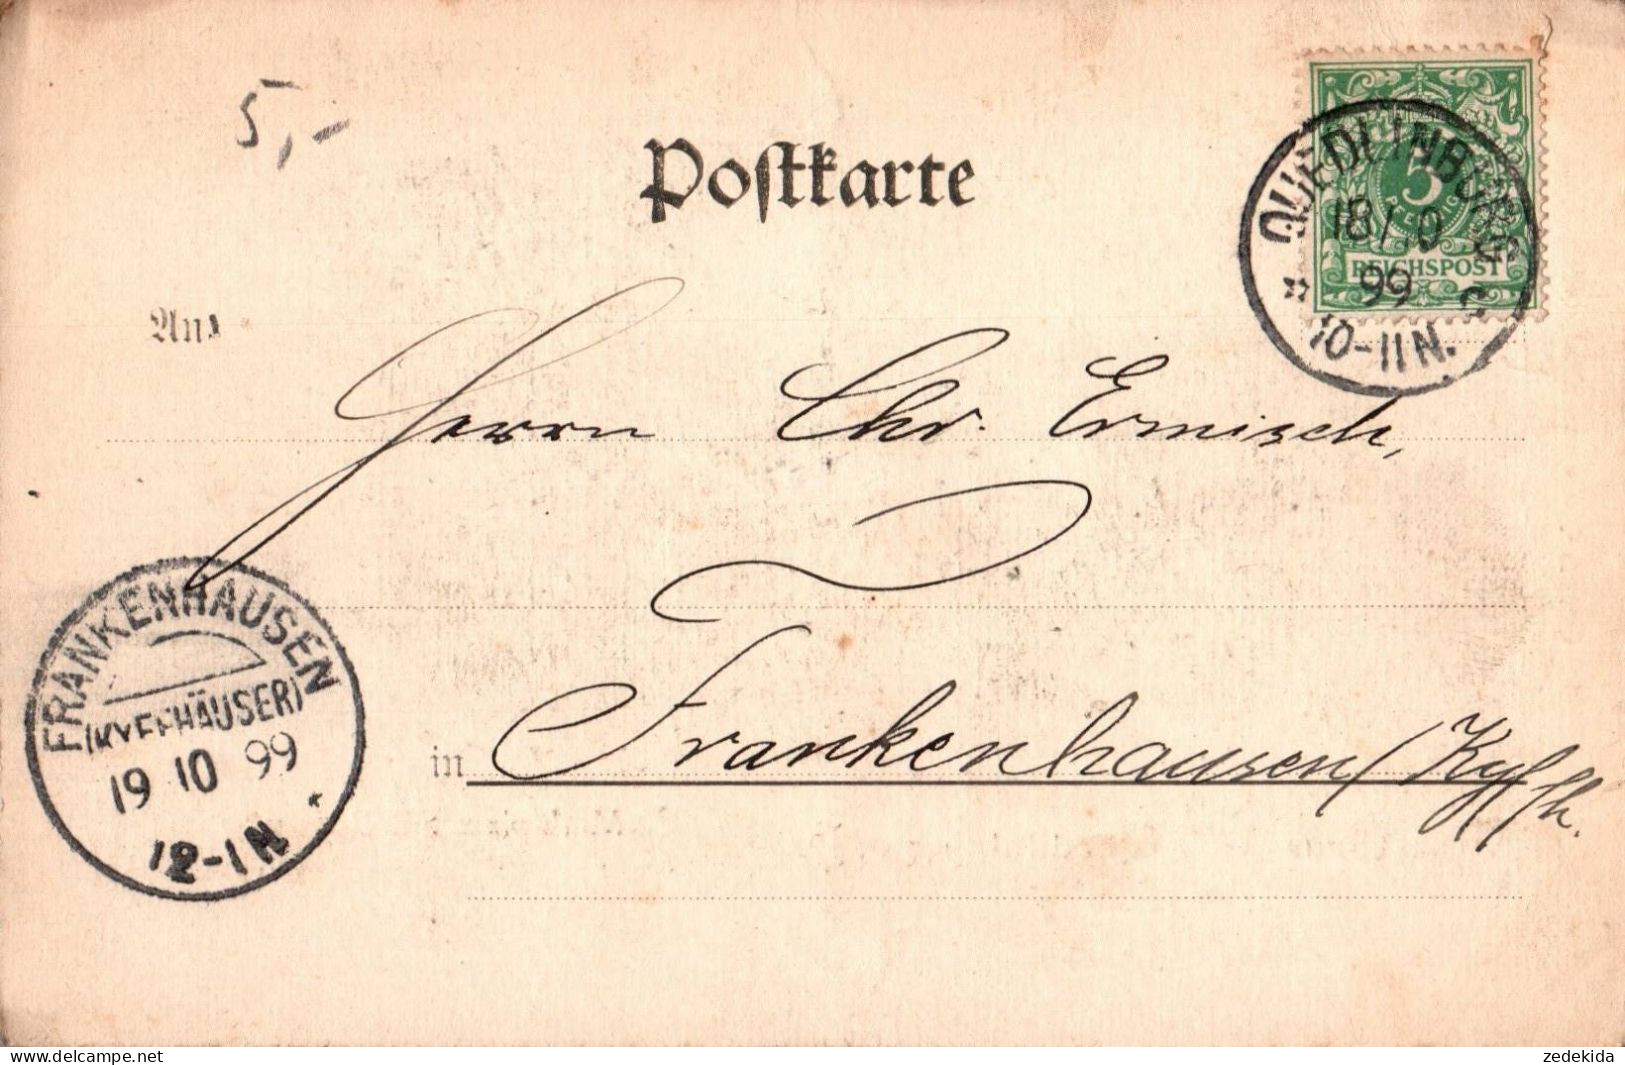 5,-
Postkarte
QUEDLINBURG
18/10
99
* C
10-11 N.
5
PFENNIG
REICHSPOST
An
Herrn Chr. Ermisch,
FRANKENHAUSEN
(KYFFHÄUSER)
19 10 99
12-1 N
*
in Frankenhausen/Kyffh.
www.delcampe.net
zedekida